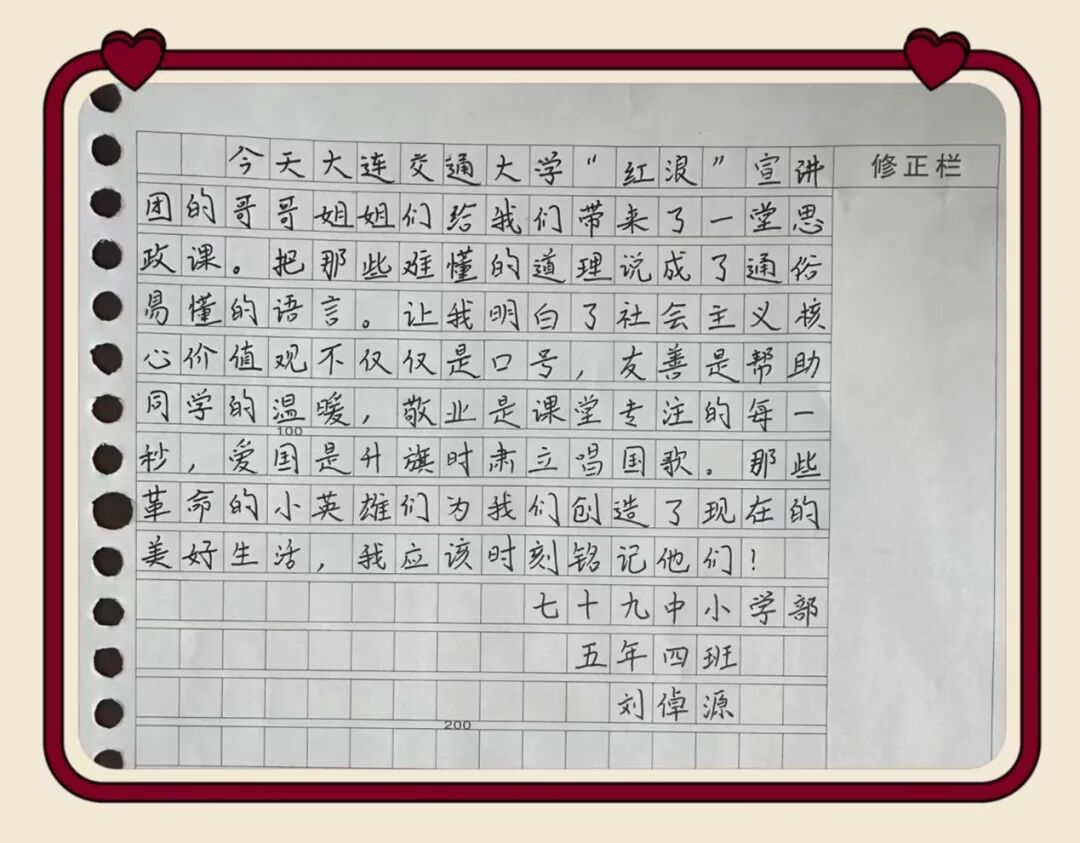 今天大连交通大学“红浪”宣讲
修正栏
团的哥哥姐姐们给我们带来了一堂思
政课。把那些难懂的道理说成了通俗
易懂的语言。让我明白了社会主义核
心价值观不仅仅是口号，友善是帮助
同学的温暖，敬业是课堂专注的每一
100
秒，爱国是升旗时肃立唱国歌。那些
革命的小英雄们为我们创造了现在的
美好生活，我应该时刻铭记他们！
七十九中小学部
五年四班
刘倬源
200